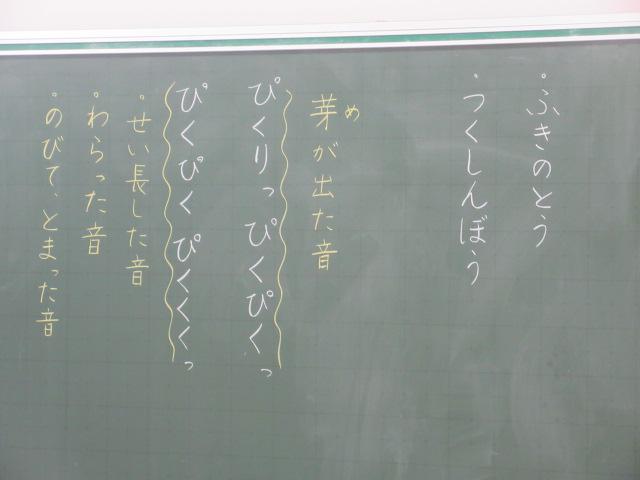 ・ふきのとう
・つくしんぼう
め
芽が出た音
ぴくりっぴくぴくっ
ぴくぴくぴくくくっ
・せい長した音
・わらった音
・のびて、とまった音